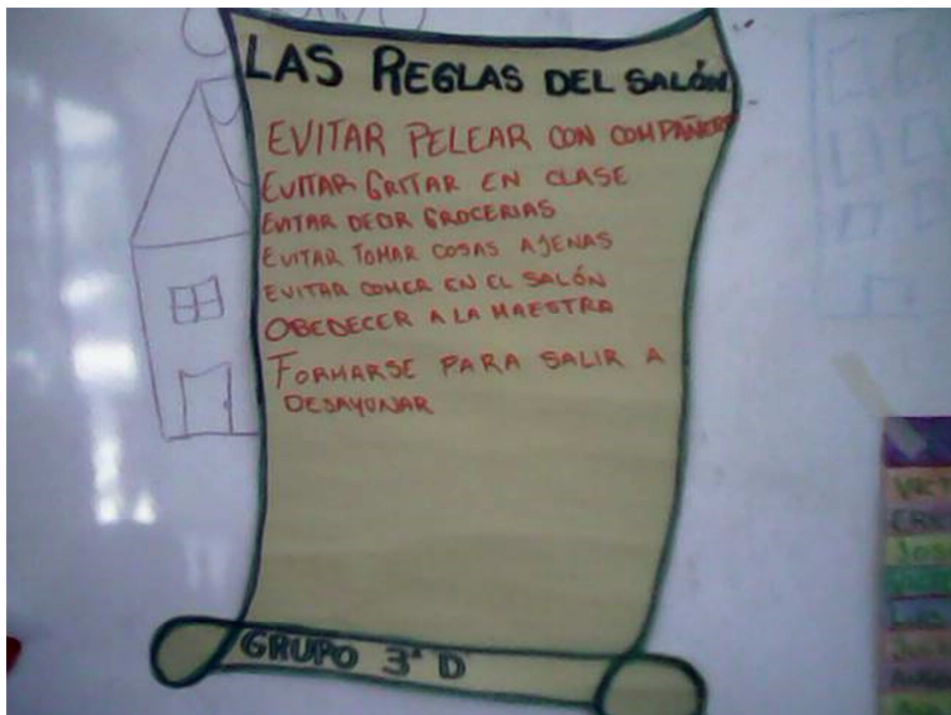 LAS REGLAS DEL SALÓN
EVITAR PELEAR CON COMPAÑEROS
EVITAR GRITAR EN CLASE
EVITAR DECIR GROCERIAS
EVITAR TOMAR COSAS AJENAS
EVITAR COMER EN EL SALÓN
OBEDECER A LA MAESTRA
FORMARSE PARA SALIR A
DESAYUNAR
GRUPO 3° D